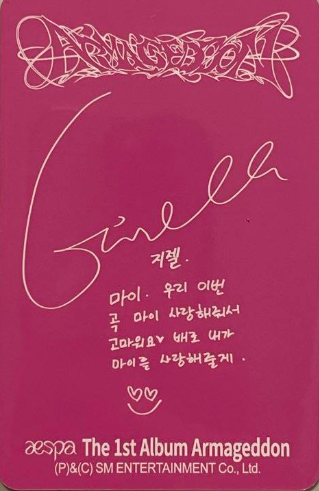 ARMAGEDDON
Giselle
지젤.
마이. 우리 이번
곡 마이 사랑해줘서
고마워요♥ 배로 내가
마이를 사랑해줄게.
aespa The 1st Album Armageddon
(P)&(C) SM ENTERTAINMENT Co., Ltd.